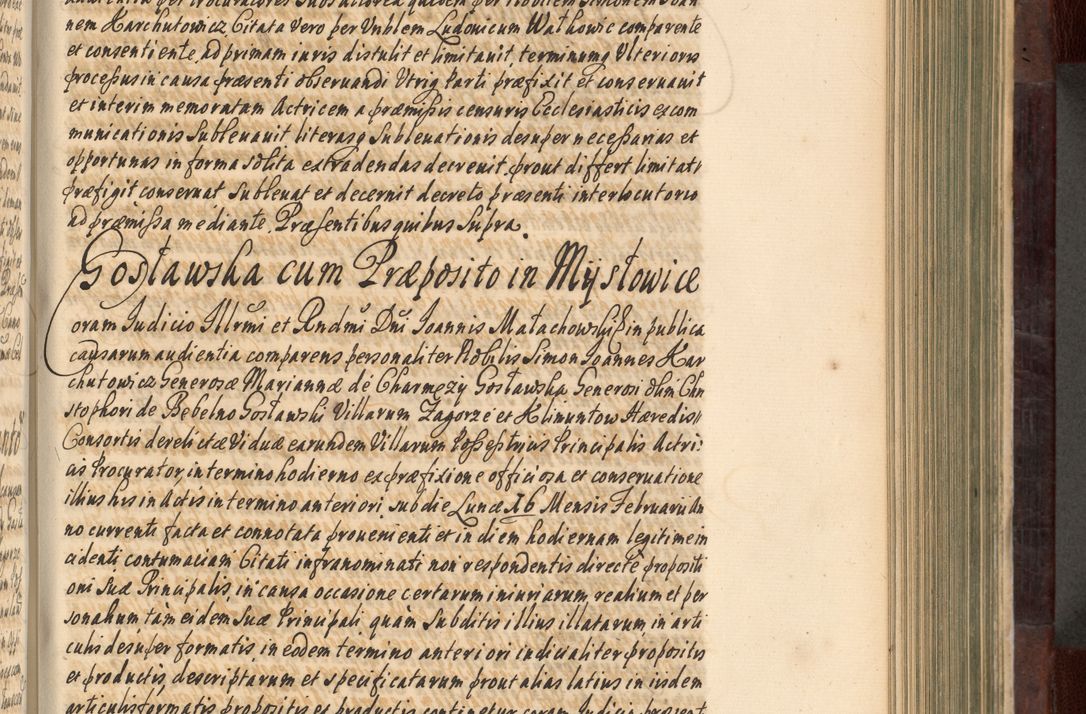 nem Harchutowicz Citata vero per Vnblem Ludovicum Wałhowic comparente
et consentiente, ad primam iuris distulit et limitauit, terminumq Vlterioris
processus in causa præsenti obseruandi Vtriq Parti præfixit et conseruauit
et interim memoratam Actricem a præmissis censuris Ecclesiasticis excom
municationis Subleuauit literasq Subleuationis desuper necessarias et
opportunas in forma solita extradendas decreuit, prout differt limitat
præfigit conseruat Subleuat et decernit decreto præsenti interlocutorio
ad præmissa mediante, Præsentibus quibus Supra.
Gosławska cum Præposito in Mysłowice
oram Iudicio Illrmi et Rndmi Dni Ioannis Małachowski in publica
causarum audientia comparens personaliter Nobilis Simon Ioannes Har
chutowicz Generosæ Mariannæ de Charmęzy Gosławska Generosi olim Chri
stophori de Bebelno Gosławski Villarum Zagorze et Klimuntow Hæredis
Consortis derelictæ Viduæ earundem Villarum Possestricis Principalis Actri:
cis Procurator, in termino hodierno ex præfixione officiosa et conseruatione
illius his in Actis in termino anteriori sub die Lunæ 16 Mensis Februarii An
no currenti facta et connotata proueniente et in diem hodiernam legitime in
cidenti contumaciam Citati infranominati non respondentis directe propositi
oni Suæ Principalis, in causa occasione certarum iniuriarum realium et per
sonalium tam eidem Suæ Principali quam Subditis illius illatarum, in arti
culis desuper formatis in eodem termino anteriori iudicialiter propositis
et productis, descriptarum et specificatarum prout alias latius in iisdem
articulis formatis propositis et productis continetur coram Iudicio præsent